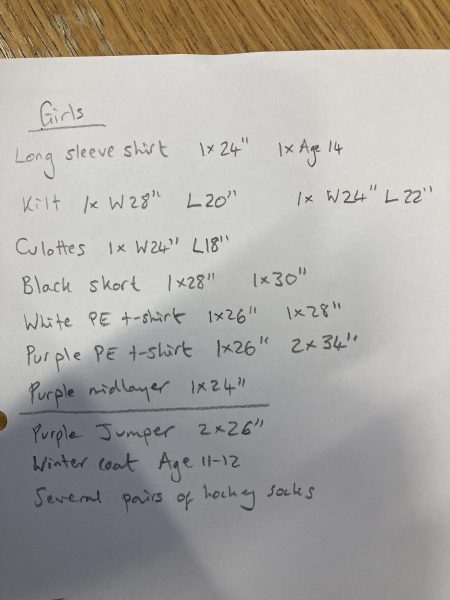 Girls
Long sleeve shirt 1x24" 1x Age 14
Kilt 1x W28" L20" 1x W24" L22"
Culottes 1x W24" L18"
Black skort 1x28" 1x30"
White PE t-shirt 1x26" 1x28"
Purple PE t-shirt 1x26" 2x34"
Purple midlayer 1x24"
Purple Jumper 2x26"
Winter coat Age 11-12
Several pairs of hockey socks